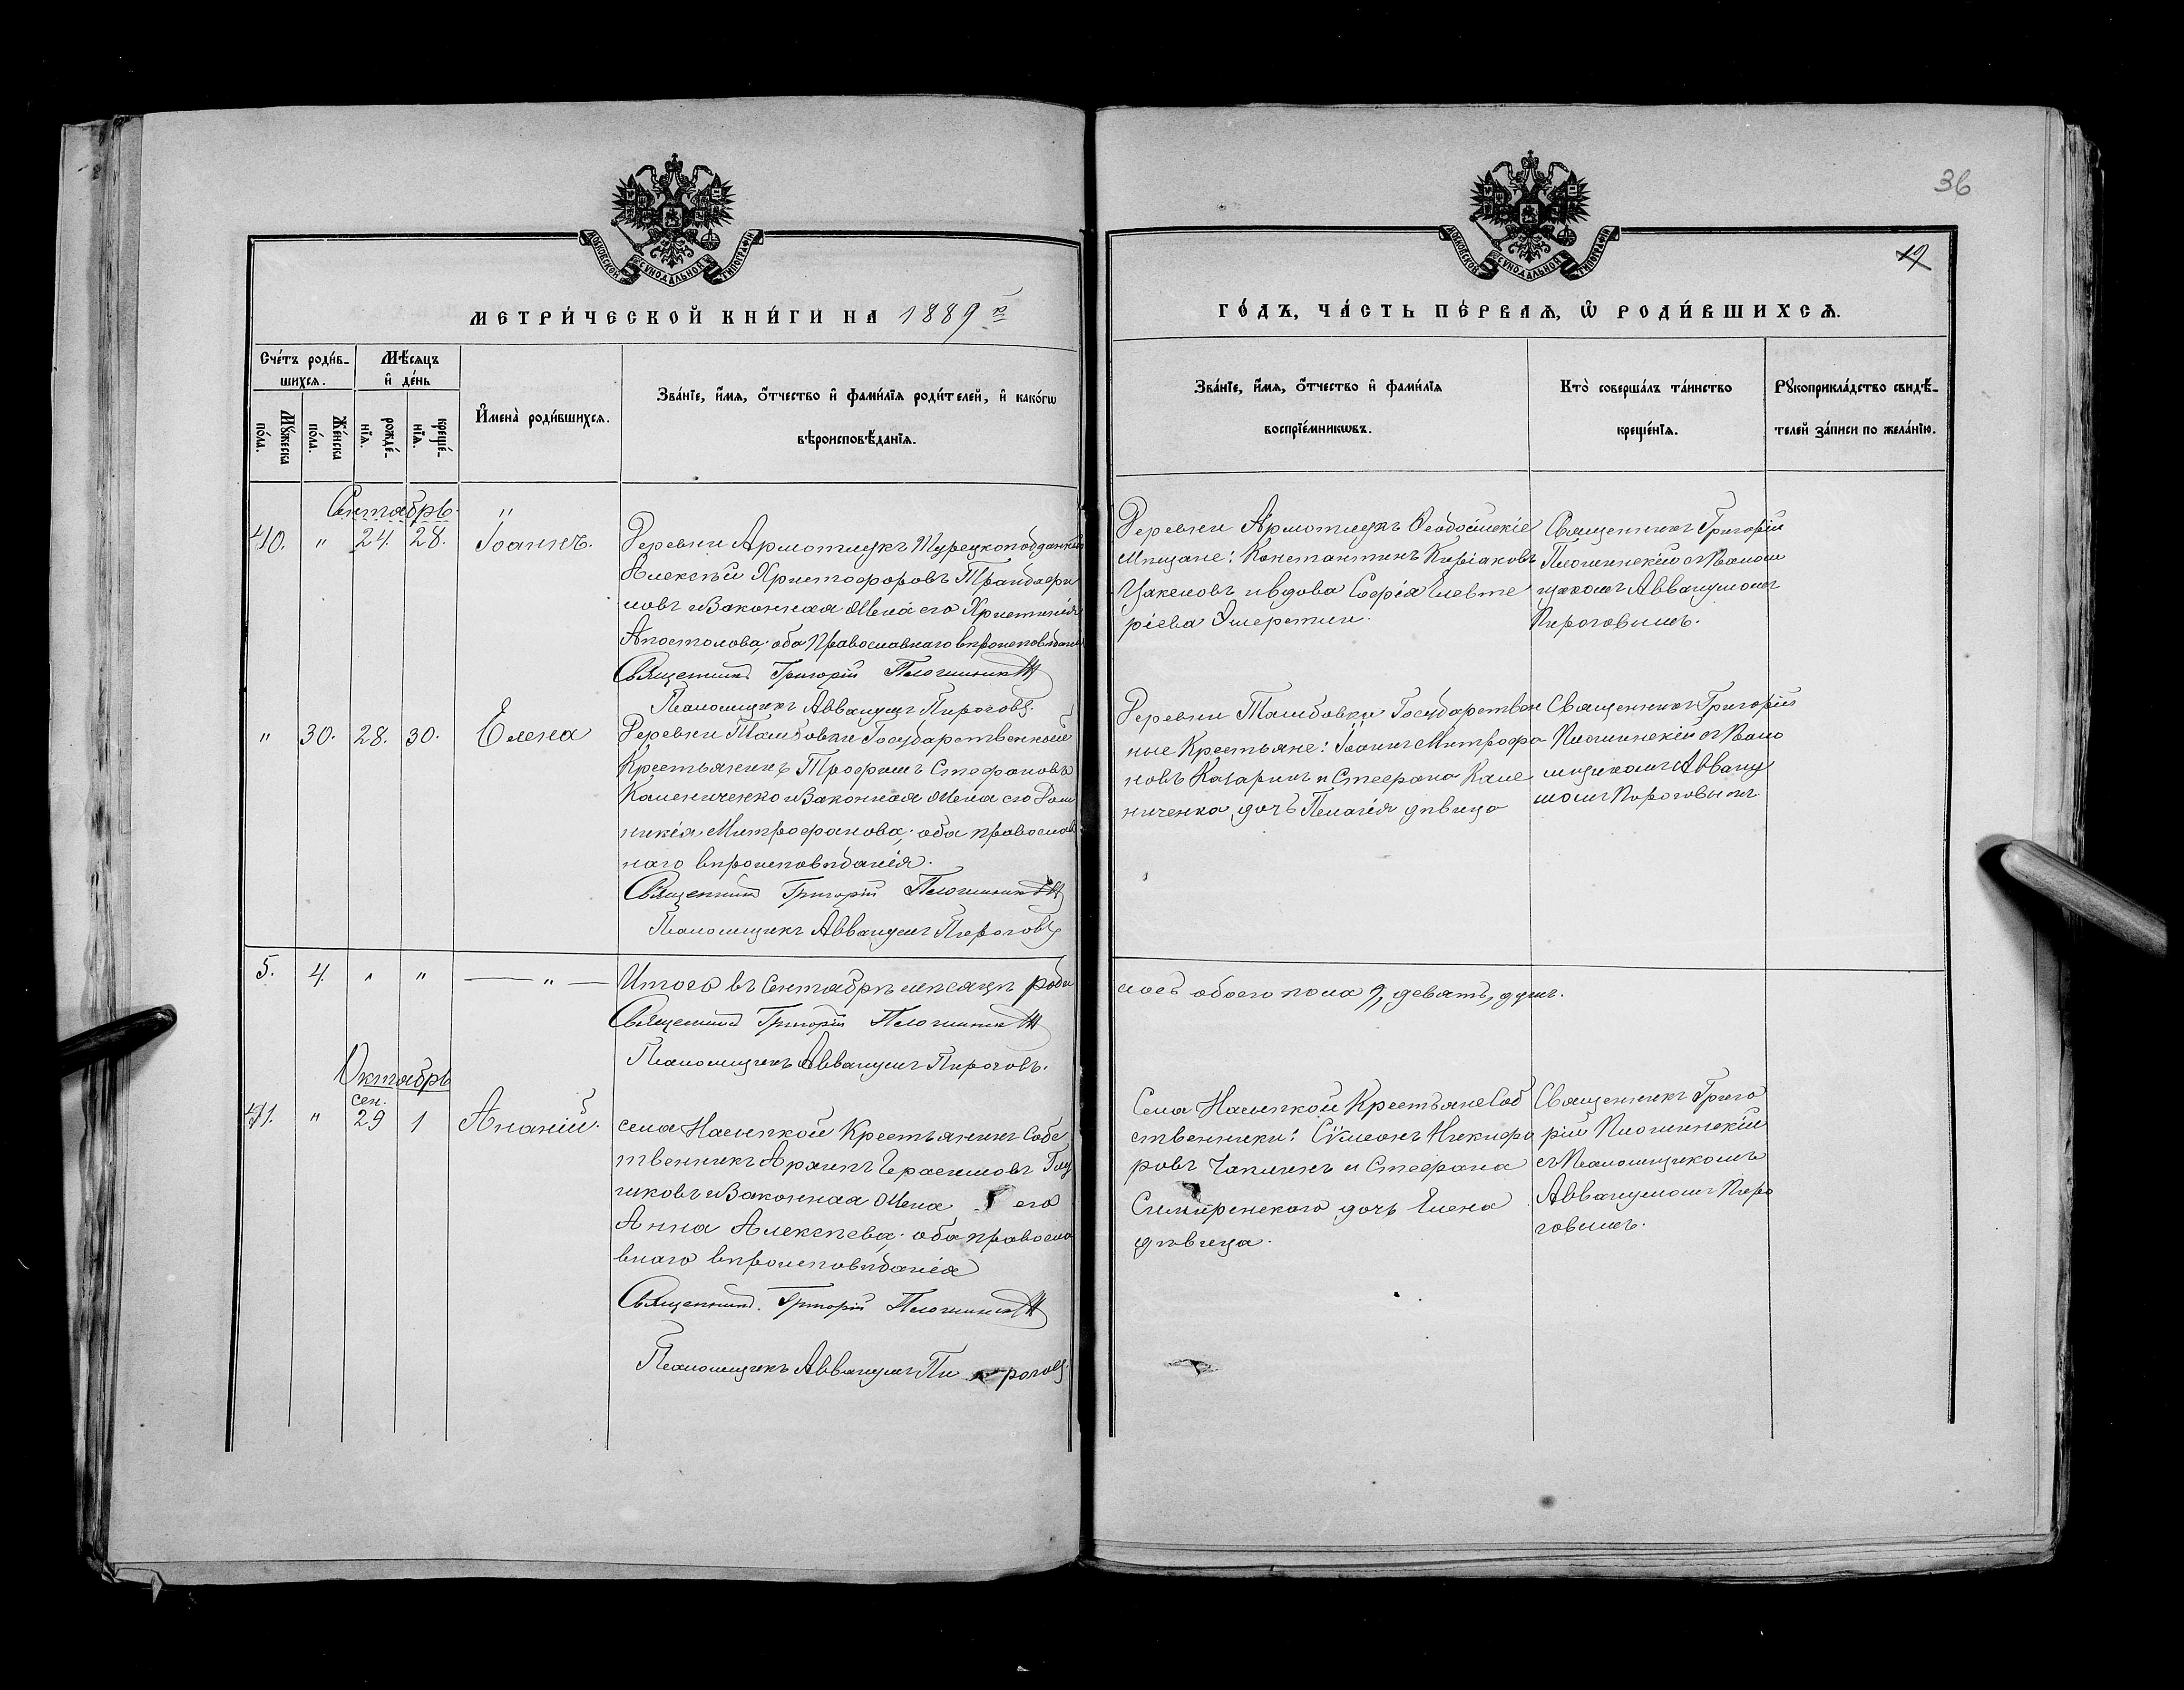 36
19
МОСКОВСКОЙ СѴНОДАЛЬНОЙ ТИПОГРАФІИ
МОСКОВСКОЙ СѴНОДАЛЬНОЙ ТИПОГРАФІИ
МЕТРИ́ЧЕСКОЙ КНИ́ГИ НА 1889й
ГО́ДЪ, ЧА́СТЬ ПЕ́РВАѦ, Ѡ҆ РОДИ́ВШИХСѦ.
Сче́тъ роди́в-
шихсѧ.
Мѣ́сѧцъ
и҆ де́нь
Мꙋ́жеска
по́ла.
Же́нска
по́ла.
рожде́-
нїѧ.
креще́-
нїѧ.
И҆мена̀ роди́вшихсѧ.
Зва́нїе, и҆́мѧ, ѻ҆́тчество и҆ фами́лїѧ роди́телей, и҆ како́гѡ
вѣроисповѣ́данїѧ.
Зва́нїе, и҆́мѧ, ѻ҆́тчество и҆ фами́лїѧ
воспрїе́мникѡвъ.
Кто̀ соверша́лъ та́инство
креще́нїѧ.
Рꙋкоприкла́дство свидѣ́-
телей за́писи по жела́нїю.
Сентябрь.
40. " 24. 28. Іоаннъ.
Деревни Армотлукъ Турецкоподданный
Алексѣй Христофоровъ
новъ и Законная Жена его Христинія
Апостолова, оба Православнаго вѣроисповѣданія
Священникъ Григорій
Псаломщикъ Аввакумъ Пироговъ.
Деревни Армотлукъ Ѳеодосійскіе
Мѣщане: Константинъ Киріаковъ
Цакеловъ и вдова Софія Елевте
ріева
Священникъ Григорій
съ Псалом
щикомъ Аввакумомъ
Пироговымъ.
" 30. 28. 30. Елена
Деревни Тамбовки Государственный
Крестьянинъ Трофимъ Стефановъ
Камениченко и Законная Жена его Дом
никія Митрофанова; оба православ
наго вѣроисповѣданія.
Священникъ Григорій
Псаломщикъ Аввакумъ Пироговъ
Деревни Тамбовки Государствен
ные Крестьяне: Іоаннъ Митрофа
новъ Казаринъ и Стефана Каме
ниченка дочь Пелагія дѣвица
Священникъ Григорій
съ Псало
мщикомъ Авваку
момъ Пироговымъ
5. 4. " " — " — Итого въ Сентябрѣ мѣсяцѣ роди
лось обоего пола 9, девять, душъ.
Священникъ Григорій
Псаломщикъ Аввакумъ Пироговъ.
Октябрь
сен.
41. " 29 1 Ананій.
села Насыпкой Крестьянинъ Собс
твенникъ Архипъ Герасимовъ Глу
шковъ и Законная Жена его
Анна Алексѣева; оба правосла
внаго вѣроисповѣданія
Священникъ. Григорій
Псаломщикъ Аввакумъ Пи роговъ
Села Насыпкой Крестьяне Соб
ственники: Сѵмеонъ Никифо
ровъ Чаплинъ и Стефана
Смиренского дочь Елена
дѣвица.
Священникъ Григо
рій
съ Псаломщикомъ
Аввакумомъ Пиро
говымъ.